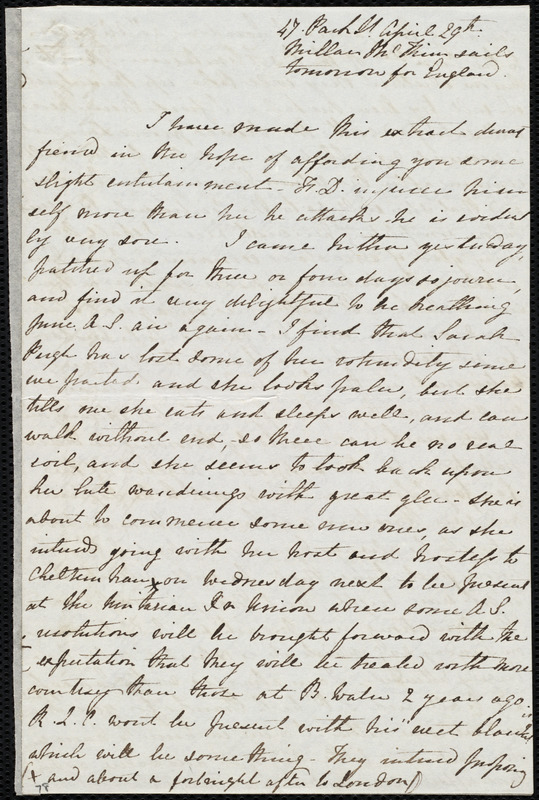 47. Park St. April 29th.
William Mc Kim sails
tomorrow for England.
I have made this extract dear
friend in the hope of affording you some
slight entertainment - F. D. injures him
self more than her he attacks - he is evident
ly very sore. I came hither yesterday,
patched up for three or four days sojourn,
and find it very delightful to be breathing
pure A. S. air again - I find that Sarah
Pugh has lost some of her rotundity since
we parted and she looks paler, but she
tells me she eats and sleeps well, and can
walk without end, - so there can be no real
evil, and she seems to look back upon
her late wanderings with great glee - she is
about to commence some new ones, as she
intends going with her host and hostess to
Cheltenham x on Wednesday next to be present
at the Unitarian Union when some A. S.
resolutions will be brought forward with the
expectation that they will be treated with more
courtesy than those at B. Water 2 years ago.
R. L. C. wont be present with his wet blanket
which will be something - They intend
(x and about a fortnight after to London)
78